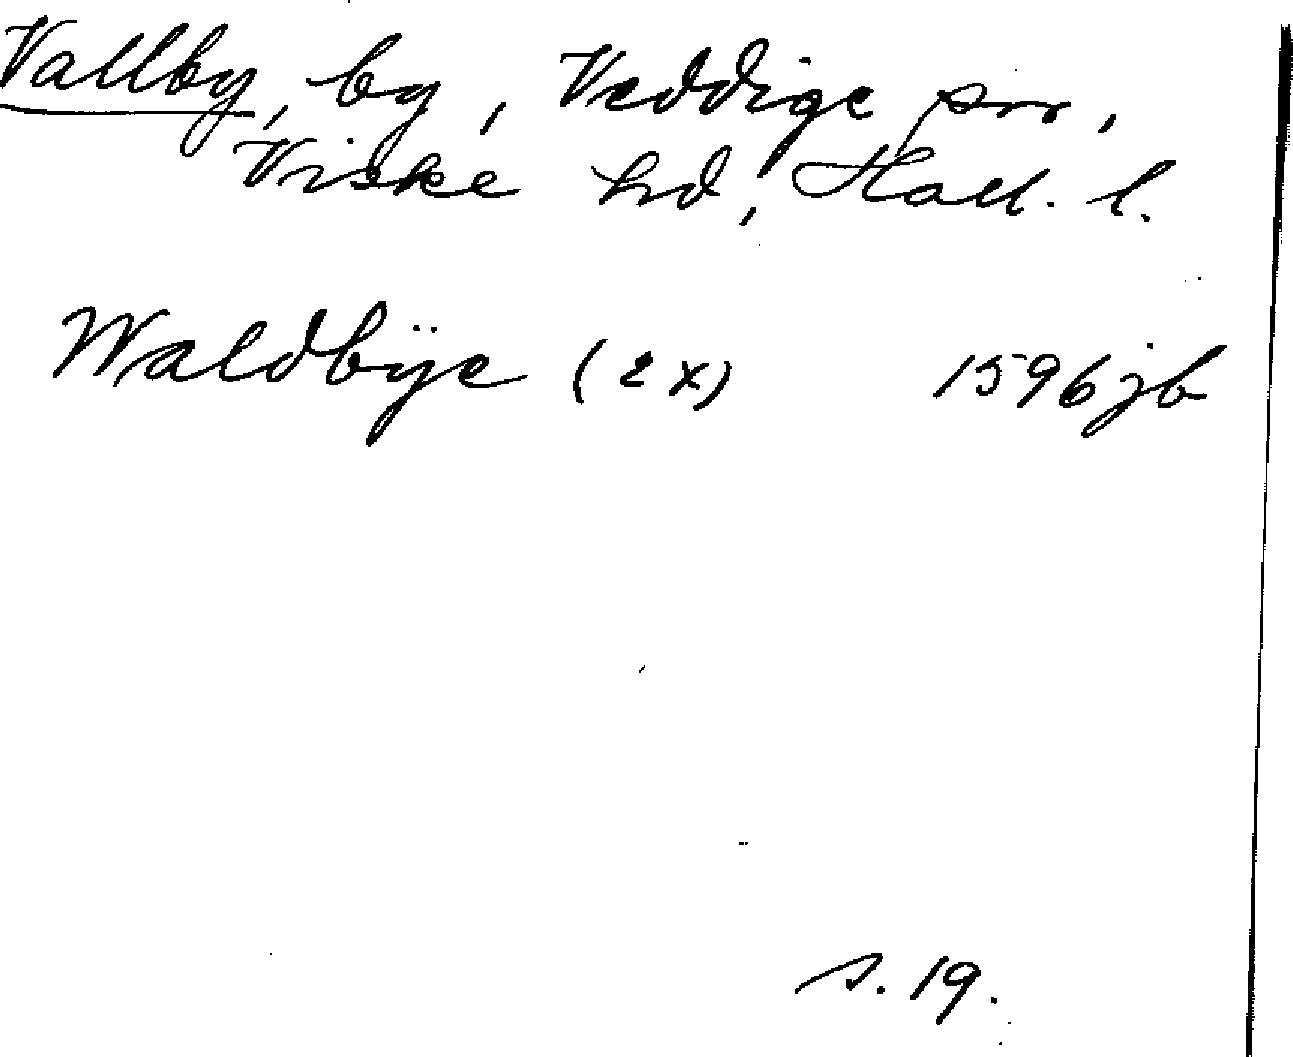 Vallby, by, Veddige sn,
Viske hd, Hall. l.
Waldbÿe (2 x) 1596 jb
s. 19.